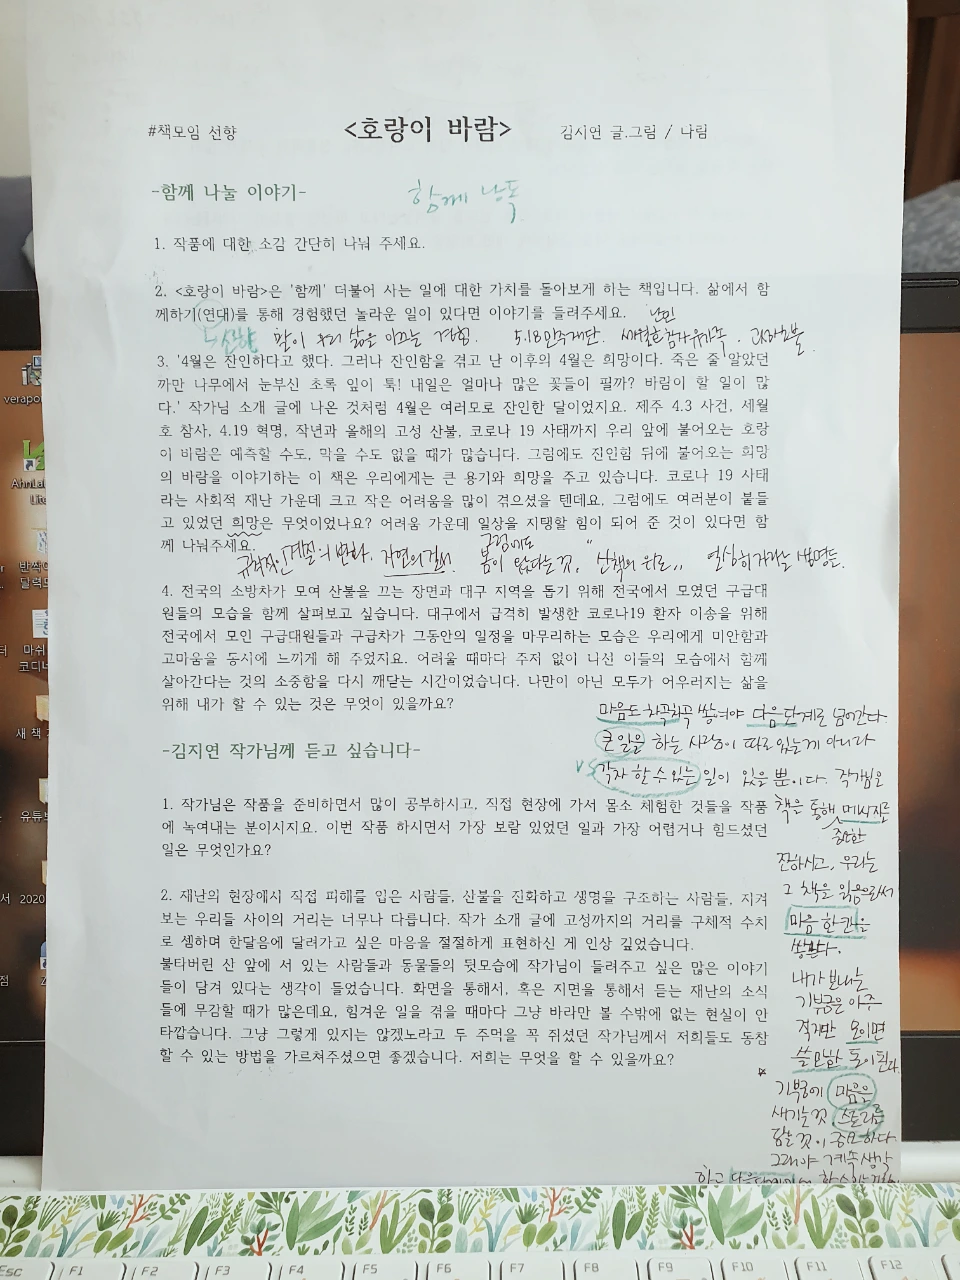 #책모임 선향 <호랑이 바람> 김시연 글.그림 / 나림
-함께 나눌 이야기-
함께 낭독
1. 작품에 대한 소감 간단히 나눠 주세요.
2. <호랑이 바람>은 '함께' 더불어 사는 일에 대한 가치를 돌아보게 하는 책입니다. 삶에서 함
께하기(연대)를 통해 경험했던 놀라운 일이 있다면 이야기를 들려주세요. 난민
우리 삶을 이끄는 경험. 5.18민주재단. 세월호참사유가족. 고성산불.
3. '4월은 잔인하다고 했다. 그러나 잔인함을 겪고 난 이후의 4월은 희망이다. 죽은 줄 알았던
까만 나무에서 눈부신 초록 잎이 툭! 내일은 얼마나 많은 꽃들이 필까? 바람이 할 일이 많
다.' 작가님 소개 글에 나온 것처럼 4월은 여러모로 잔인한 달이었지요. 제주 4.3 사건, 세월
호 참사, 4.19 혁명, 작년과 올해의 고성 산불, 코로나 19 사태까지 우리 앞에 불어오는 호랑
이 바람은 예측할 수도, 막을 수도 없을 때가 많습니다. 그럼에도 잔인함 뒤에 불어오는 희망
의 바람을 이야기하는 이 책은 우리에게는 큰 용기와 희망을 주고 있습니다. 코로나 19 사태
라는 사회적 재난 가운데 크고 작은 어려움을 많이 겪으셨을 텐데요, 그럼에도 여러분이 붙들
고 있었던 희망은 무엇이었나요? 어려움 가운데 일상을 지탱할 힘이 되어 준 것이 있다면 함
께 나눠주세요.
그럼에도
규칙적인 변화. 자연의 질서. 봄이 왔다는 것. "산책의 위로" 열심히 생명들.
4. 전국의 소방차가 모여 산불을 끄는 장면과 대구 지역을 돕기 위해 전국에서 모였던 구급대
원들의 모습을 함께 살펴보고 싶습니다. 대구에서 급격히 발생한 코로나19 환자 이송을 위해
전국에서 모인 구급대원들과 구급차가 그동안의 일정을 마무리하는 모습은 우리에게 미안함과
고마움을 동시에 느끼게 해 주었지요. 어려울 때마다 주저 없이 나선 이들의 모습에서 함께
살아간다는 것의 소중함을 다시 깨닫는 시간이었습니다. 나만이 아닌 모두가 어우러지는 삶을
위해 내가 할 수 있는 것은 무엇이 있을까요?
마음도 차곡차곡 쌓여야 다음 단계로 넘어간다.
큰 일을 하는 사람이 따로 있는게 아니라
vs 각자 할 수 있는 일이 있을 뿐이다. 작가님은
책을 통해 메시지를
중요한
전하시고, 우리는
그 책을 읽음으로써
마음 한 칸을
쌓는다.
내가 보내는
기부금은 아주
적지만 모이면
쓸모있는 돈이 된다.
기부금에 마음을
새기는 것, 스토리를
담는 것이 중요하다
그래야 계속 생각
하고
-김지연 작가님께 듣고 싶습니다-
1. 작가님은 작품을 준비하면서 많이 공부하시고, 직접 현장에 가서 몸소 체험한 것들을 작품
에 녹여내는 분이시지요. 이번 작품 하시면서 가장 보람 있었던 일과 가장 어렵거나 힘드셨던
일은 무엇인가요?
2. 재난의 현장에서 직접 피해를 입은 사람들, 산불을 진화하고 생명을 구조하는 사람들, 지켜
보는 우리들 사이의 거리는 너무나 다릅니다. 작가 소개 글에 고성까지의 거리를 구체적 수치
로 셈하며 한달음에 달려가고 싶은 마음을 절절하게 표현하신 게 인상 깊었습니다.
불타버린 산 앞에 서 있는 사람들과 동물들의 뒷모습에 작가님이 들려주고 싶은 많은 이야기
들이 담겨 있다는 생각이 들었습니다. 화면을 통해서, 혹은 지면을 통해서 듣는 재난의 소식
들에 무감할 때가 많은데요, 힘겨운 일을 겪을 때마다 그냥 바라만 볼 수밖에 없는 현실이 안
타깝습니다. 그냥 그렇게 있지는 않겠노라고 두 주먹을 꼭 쥐셨던 작가님께서 저희들도 동참
할 수 있는 방법을 가르쳐주셨으면 좋겠습니다. 저희는 무엇을 할 수 있을까요?
verapo
AhnLa
Lite
반쪽
달력
마쉬
코디너
새 책
유튜브
2020
Esc F1 F2 F3 F4 F5 F6 F7 F8 F9 F10 F11 F12